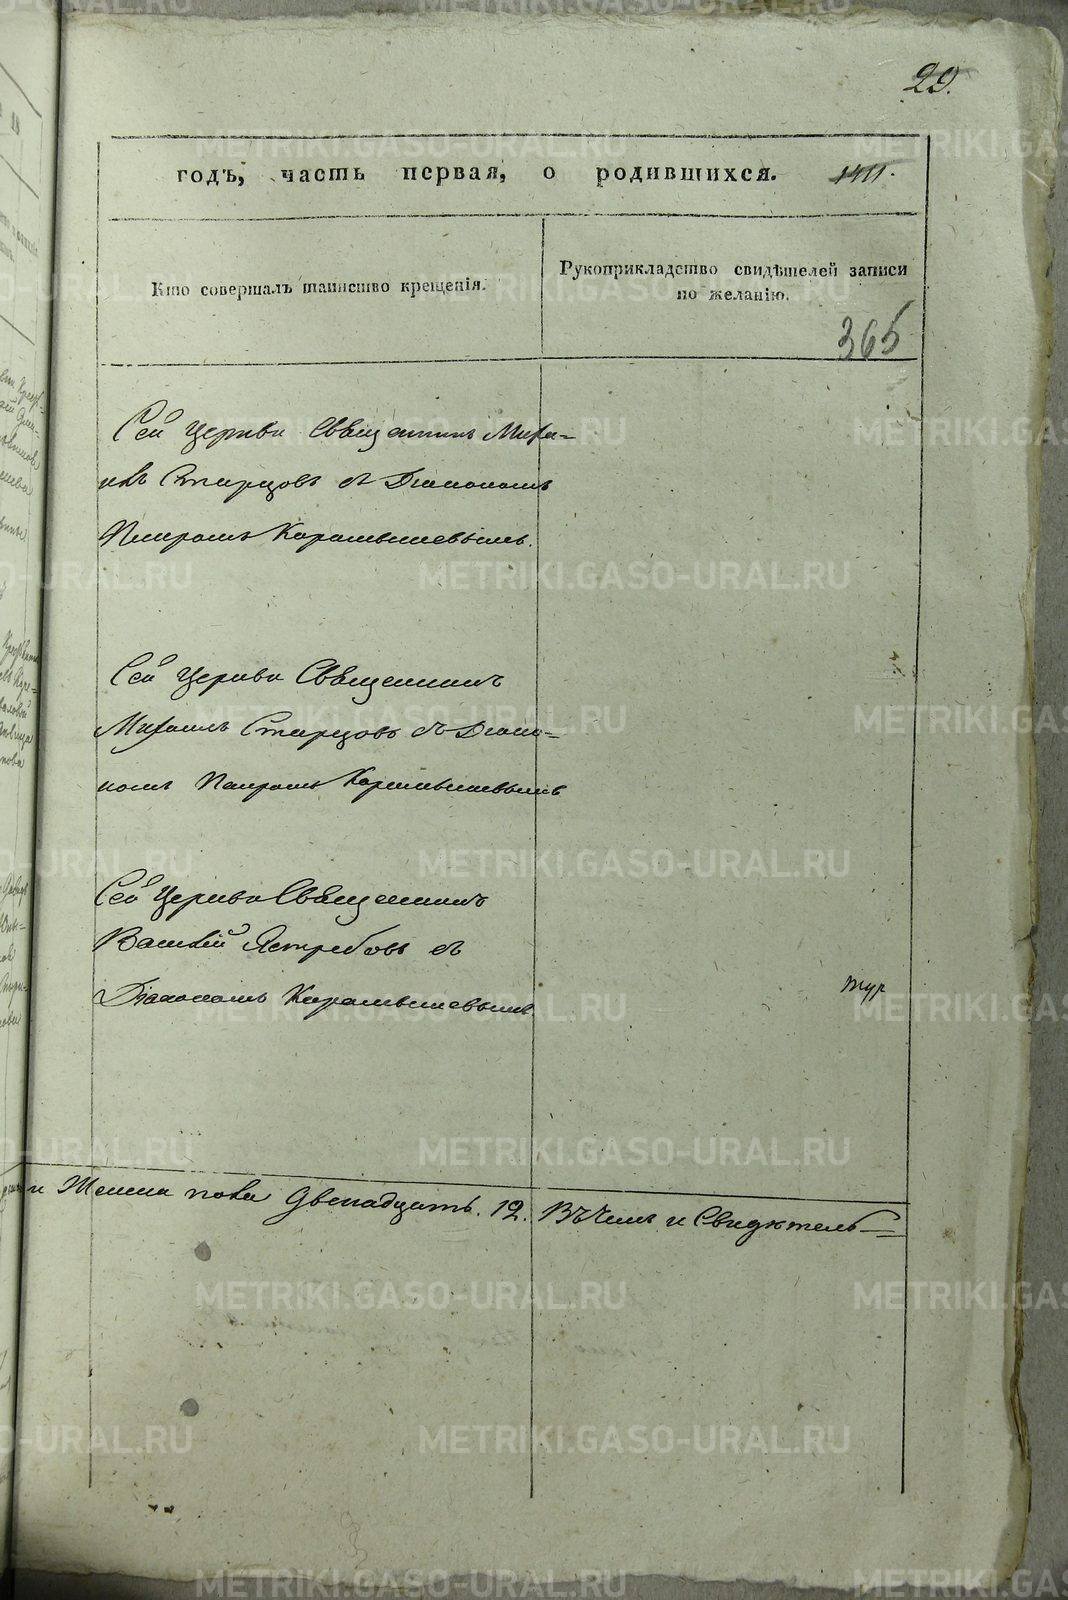 29.
годъ, часть первая, о родившихся.
Кто совершалъ таинство крещенія.
Рукоприкладство свидѣтелей записи
по желанію.
365
Сей Церкви Священникъ Миха-
илъ Старцовъ съ Діакономъ
Петромъ Карамышевымъ.
Сей Церкви Священникъ
Михаилъ Старцовъ съ Діако-
номъ Петромъ Карамышевымъ
Сей Церкви Священникъ
Василій Ястребовъ съ
Діакономъ Карамышевымъ
и Женска пола Двенадцать. 12. Въ чемъ и Свидѣтель-
METRIKI.GASO-URAL.RU